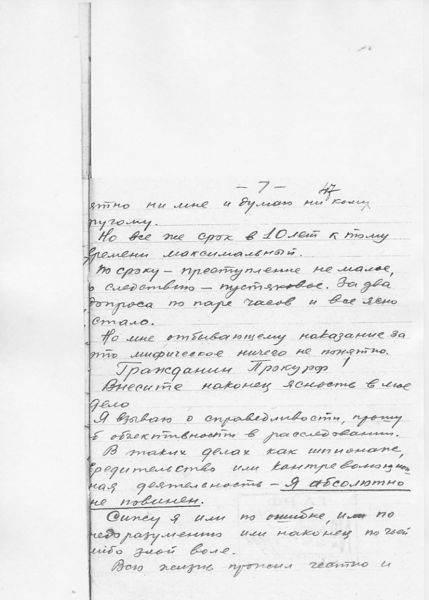 - 7 - 47
ятно ни мне и думаю ни кому
ругому.
Но все же срок в 10 лет к тому
времени максимальный.
По сроку - преступление не малое,
о следствию - пустяковое. За два
допроса по паре часов и все ясно
стало.
Но мне отбывающему наказание за
это мифическое ничего не понятно.
Гражданин Прокурор!
Внесите наконец ясность в мое
дело
Я взываю о справедливости, прошу
б объективности в расследовании.
В таких делах как шпионаже,
редительство или контрреволюцион
ная деятельность - Я абсолютно
не повинен.
Сижу я или по ошибке, или по
недоразумению или наконец по чьей
либо злой воле.
Всю жизнь прожил честно и